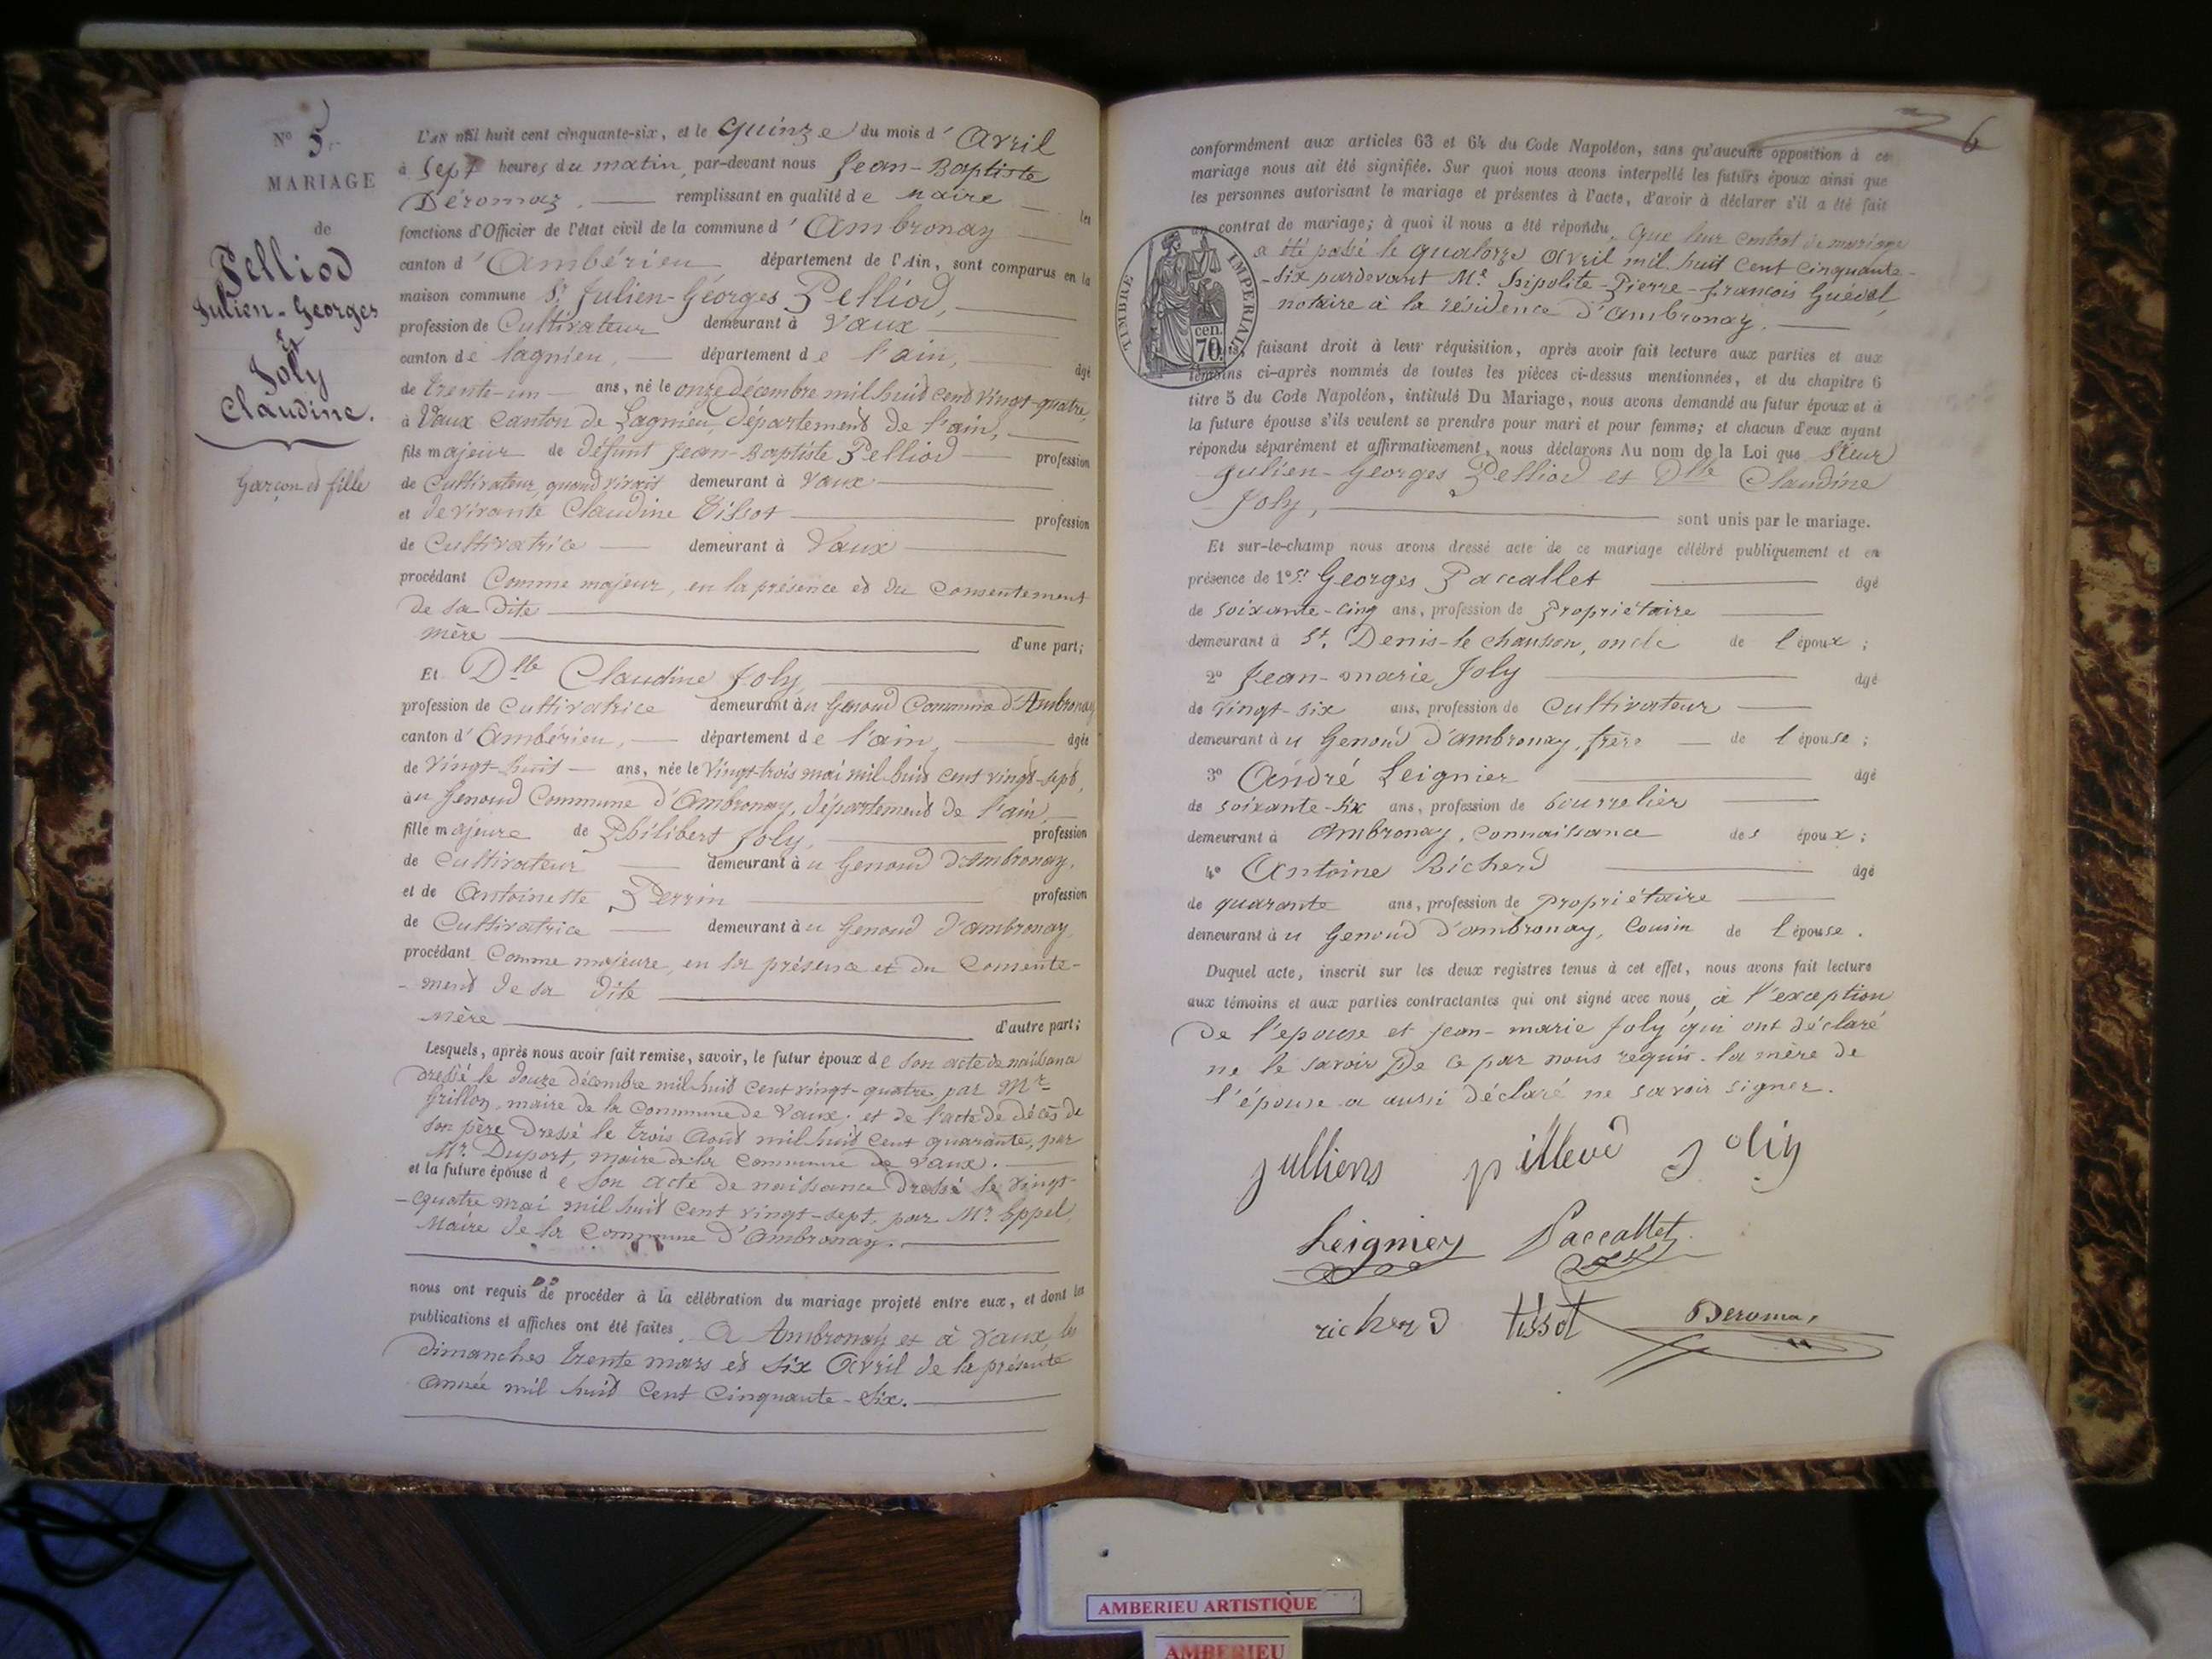 N° 5
MARIAGE
de
Pelliod
Julien-Georges
Et
Joly
Claudine.
garçon et fille
L'AN mil huit cent cinquante-six, et le quinze du mois d'Avril
à sept heures du matin, par-devant nous Jean-Baptiste
Déromaz. remplissant en qualité de maire les
fonctions d'Officier de l'état civil de la commune d'Ambronay
canton d'Ambérieu département de l'Ain, sont comparus en la
maison commune Sr Julien-Georges Pelliod,
profession de Cultivateur demeurant à Vaux
canton de lagnieu, département de l'ain, âgé
de trente-un ans, né le onze décembre mil huit cent vingt-quatre,
à Vaux Canton de Lagnieu, département de l'ain,
fils majeur de défunt Jean-Baptiste Pelliod profession
de Cultivateur, quand vivait demeurant à Vaux
et de vivante Claudine Tissot profession
de Cultivatrice demeurant à Vaux
procédant Comme majeur, en la présence et du Consentement
de sa dite
mère d'une part;
Et Dlle Claudine Joly,
profession de Cultivatrice demeurant au Genoud Commune d'Ambronay
canton d'Ambérieu, département de l'ain, âgée
de Vingt-huit ans, née le Vingt-trois mai mil huit cent vingt-sept,
au Genoud Commune d'Ambronay, département de l'ain,
fille majeure de Philibert Joly, profession
de Cultivateur demeurant au Genoud d'Ambronay,
et de Antoinette Perrin profession
de Cultivatrice demeurant au Genoud d'ambronay,
procédant Comme majeure, en la présence et du Consente-
-ment de sa dite
Mère d'autre part;
Lesquels, après nous avoir fait remise, savoir, le futur époux de son acte de naissance
dressé le douze décembre mil huit cent vingt-quatre, par Mr
Grillon, maire de la Commune de Vaux; et de l'acte de décès de
son père dressé le trois Août mil huit cent quarante, par
Mr. Duport, maire de la Commune de Vaux.
et la future épouse de son acte de naissance dressé le vingt-
-quatre mai mil huit cent vingt-sept, par Mr. Eppel,
Maire de la Commune d'Ambronay.
nous ont requis de procéder à la célébration du mariage projeté entre eux, et dont les
publications et affiches ont été faites. A Ambronay et à Vaux, les
dimanches trente mars et six Avril de la présente
année mil huit Cent Cinquante-six.
6
conformément aux articles 63 et 64 du Code Napoléon, sans qu'aucune opposition à ce
mariage nous ait été signifiée. Sur quoi nous avons interpellé les futurs époux ainsi que
les personnes autorisant le mariage et présentes à l'acte, d'avoir à déclarer s'il a été fait
un contrat de mariage; à quoi il nous a été répondu, Que leur contrat de mariage
a été passé le quatorze avril mil huit cent cinquante-
-six pardevant Me. hipolite-Pierre-françois
notaire à la résidence d'ambronay.
TIMBRE IMPERIAL
70. cen.
faisant droit à leur réquisition, après avoir fait lecture aux parties et aux
témoins ci-après nommés de toutes les pièces ci-dessus mentionnées, et du chapitre 6
titre 5 du Code Napoléon, intitulé Du Mariage, nous avons demandé au futur époux et à
la future épouse s'ils veulent se prendre pour mari et pour femme; et chacun d'eux ayant
répondu séparément et affirmativement, nous déclarons Au nom de la Loi que Sieur
Julien-Georges Pelliod et Dlle Claudine
Joly, sont unis par le mariage.
Et sur-le-champ nous avons dressé acte de ce mariage célébré publiquement et en
présence de 1° Sr Georges Paccallet âgé
de soixante-cinq ans, profession de propriétaire
demeurant à St. Denis-le chausson, oncle de l'époux;
2° Jean-marie Joly âgé
de vingt-six ans, profession de cultivateur
demeurant au Genoud d'ambronay, frère de l'épouse;
3° André Leignier âgé
de soixante-six ans, profession de bourrelier
demeurant à Ambronay, Connaissance des époux;
4° Antoine Richerd âgé
de quarante ans, profession de propriétaire
demeurant au Genoud d'ambronay, Cousin de l'épouse.
Duquel acte, inscrit sur les deux registres tenus à cet effet, nous avons fait lecture
aux témoins et aux parties contractantes qui ont signé avec nous, à l'exception
de l'épouse et jean-marie Joly qui ont déclaré
ne le savoir De ce par nous requis. la mère de
l'épouse a aussi déclaré ne savoir signer.
julliens pilleud joliy
Leignier Paccallet
richerd tissot Deromaz
AMBERIEU ARTISTIQUE
AMBERIEU